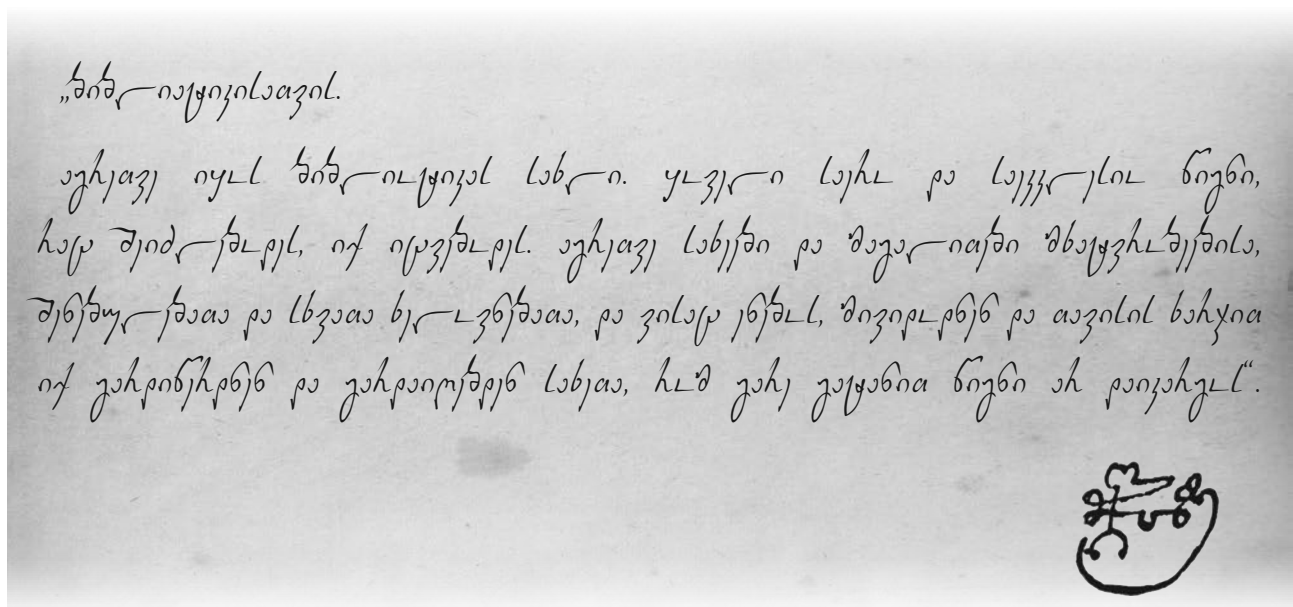 „ბიბლიატიკისათვის.
აგრეთვე იყოს ბიბლიოტიკას სახლი. ყოველი საერო და საეკკლესიო წიგნი,
რაც შეიძლებოდეს, იქ იცვებოდეს. აგრეთვე სახები და მაგალითები მხატვრობებისა,
შენებულებათა და სხვათა ხელოვნებათა, და ვისაც ენებოს, მივიდოდნენ და თავისის ხარჯით
იქ გარდიწერდნენ და გარდაიღებდენ სახეთა, რომ გარე გატანით წიგნი არ დაიკარგოს“.